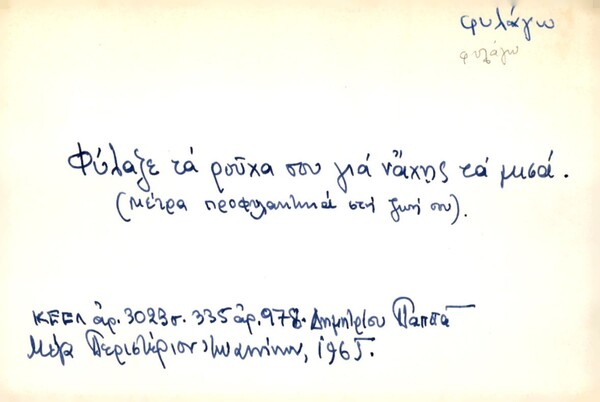 φυλάγω
φυλάγω
Φύλαξε τά ροῦχα σου γιά νἄχῃς τά μισά.
(Μέτρα προφυλακτικά στή ζωή σου).
ΚΕΕΛ ἀρ. 3023 σ. 335 ἀρ. 978. Δημητρίου Παππᾶ
Μέγα Περιστέριον Ἰωαννίνων, 1965.